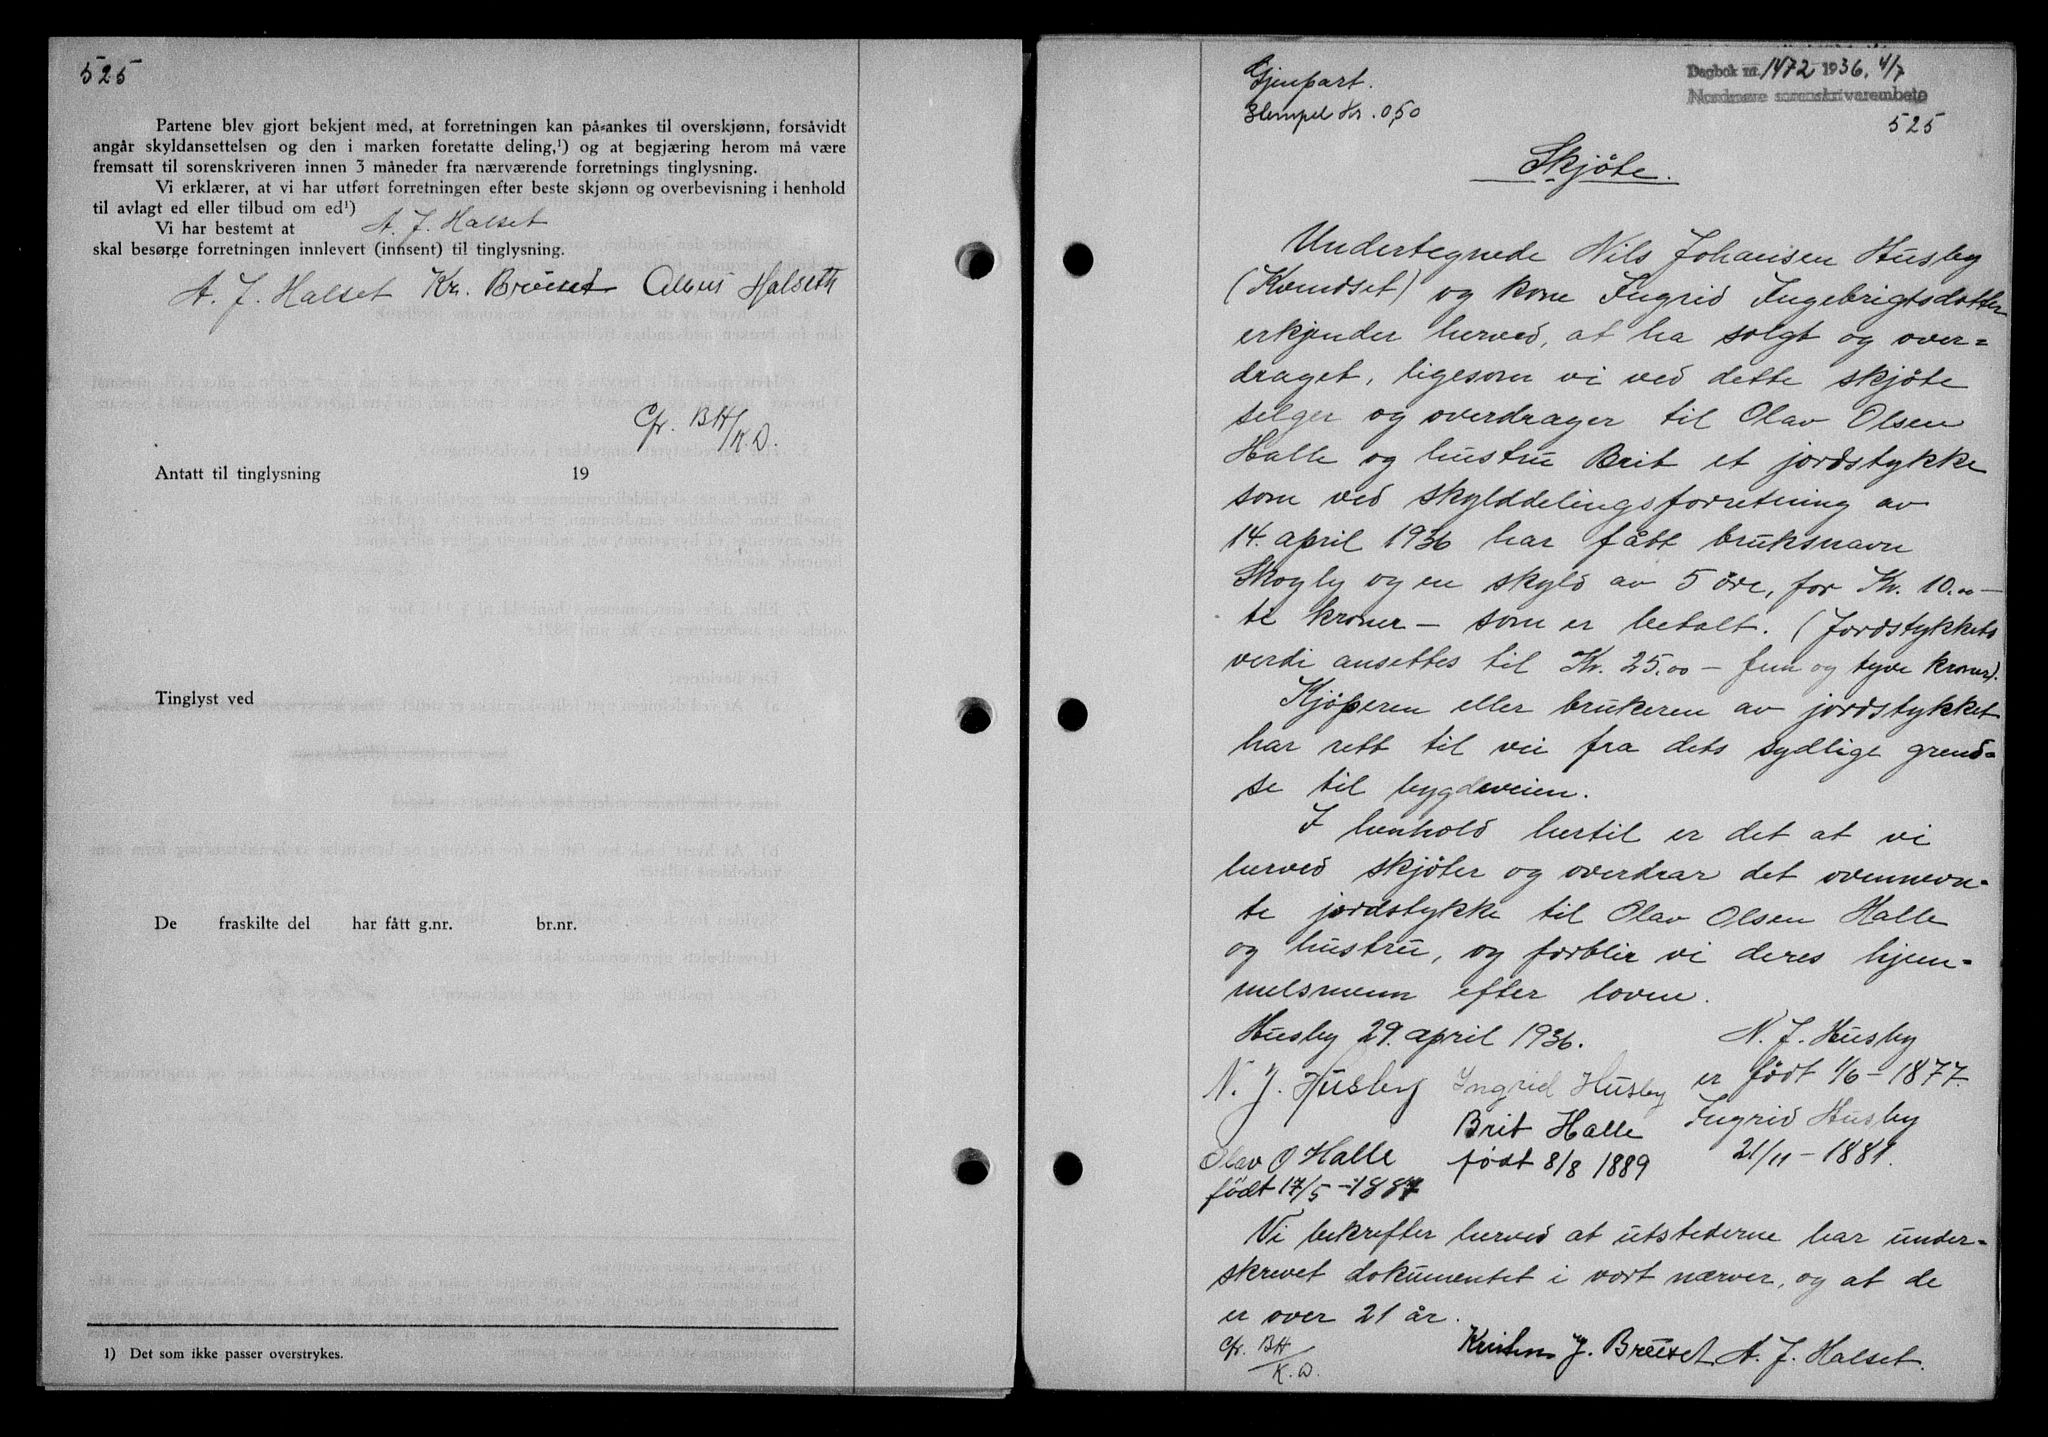 525
Partene blev gjort bekjent med, at forretningen kan på-ankes til overskjønn, forsåvidt
angår skyldansettelsen og den i marken foretatte deling,¹) og at begjæring herom må være
fremsatt til sorenskriveren innen 3 måneder fra nærværende forretnings tinglysning.
Vi erklærer, at vi har utført forretningen efter beste skjønn og overbevisning i henhold
til avlagt ed eller tilbud om ed¹)
Vi har bestemt at A. J. Halset
skal besørge forretningen innlevert (innsent) til tinglysning.
A. J. Halset Kr. Brøiset Halseth
Cfr. BH/K.D.
Antatt til tinglysning 19
Tinglyst ved
De fraskilte del har fått g.nr. br.nr.
1) Det som ikke passer overstrykes.
Gjenpart.
Stempel Kr. 0,50
Dagbok nr. 1472 1936, 4/7
Nordmøre sorenskrivarembete
525
Skjøte.
Undertegnede Nils Johansen Husby
(Kvendset) og kone Ingrid Ingebrigtsdotter
erkjender herved, at ha solgt og over=
draget, ligesom vi ved dette skjøte
selger og overdrager til Olav Olsen
Halle og hustru Brit et jordstykke
som ved skylddelingsforretning av
14. april 1936 har fått bruksnavn
Skogly og en skyld av 5 øre, for Kr. 10.00 —
ti kroner — som er betalt. (Jordstykkets
verdi ansettes til Kr. 25.00 — fem og tyve kroner).
Kjøperen eller brukeren av jordstykket
har rett til vei fra dets sydlige grend=
se til bygdeveien.
I henhold hertil er det at vi
herved skjøter og overdrar det ovennevn=
te jordstykke til Olav Olsen Halle
og hustru, og forblir vi deres hjem=
melsmenn efter loven.
Husby 29. april 1936. N. J. Husby
N. J. Husby Ingrid Husby er født 1/6 — 1877.
Brit Halle Ingrid Husby
Olav O Halle født 8/8 1889 21/11 — 1881.
født 17/5 — 1887
Vi bekrefter herved at utstederne har under=
skrevet dokumentet i vort nærver, og at de
er over 21 år.
Cfr. BH/K.D. J. Brøiset A. J. Halset.